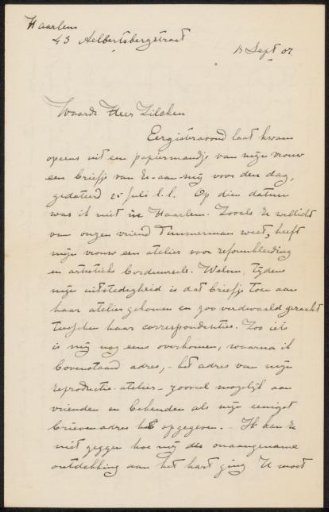 Haarlem
43 Aelbertsbergstraat
Sept 02
Waarde Heer Zilcken
Eergisteravond laat kwam
opeens uit een papiermandje van mijn vrouw
een briefje van U aan mij voor den dag,
gedateerd 25 Juli l.l. Op dien datum
was ik niet in Haarlem. Zooals U wellicht
van onzen vriend Timmerman weet, heeft
mijn vrouw een atelier voor reformkleeding
en artistieke borduursels. Tijdens
mijn uitstedigheid is dat briefje toen aan
haar atelier gekomen en zoo verdwaald geraakt
tusschen haar correspondentie. Zoo iets
is mij nog eens overkomen, waarna ik
bovenstaand adres, - het adres van mijn
reproductie-atelier - zooveel mogelijk aan
vrienden en bekenden als mijn eenigst
brievenadres heb opgegeven. - Ik kan U
niet zeggen hoe mij die onaangename
ontdekking aan het hart ging. U moet